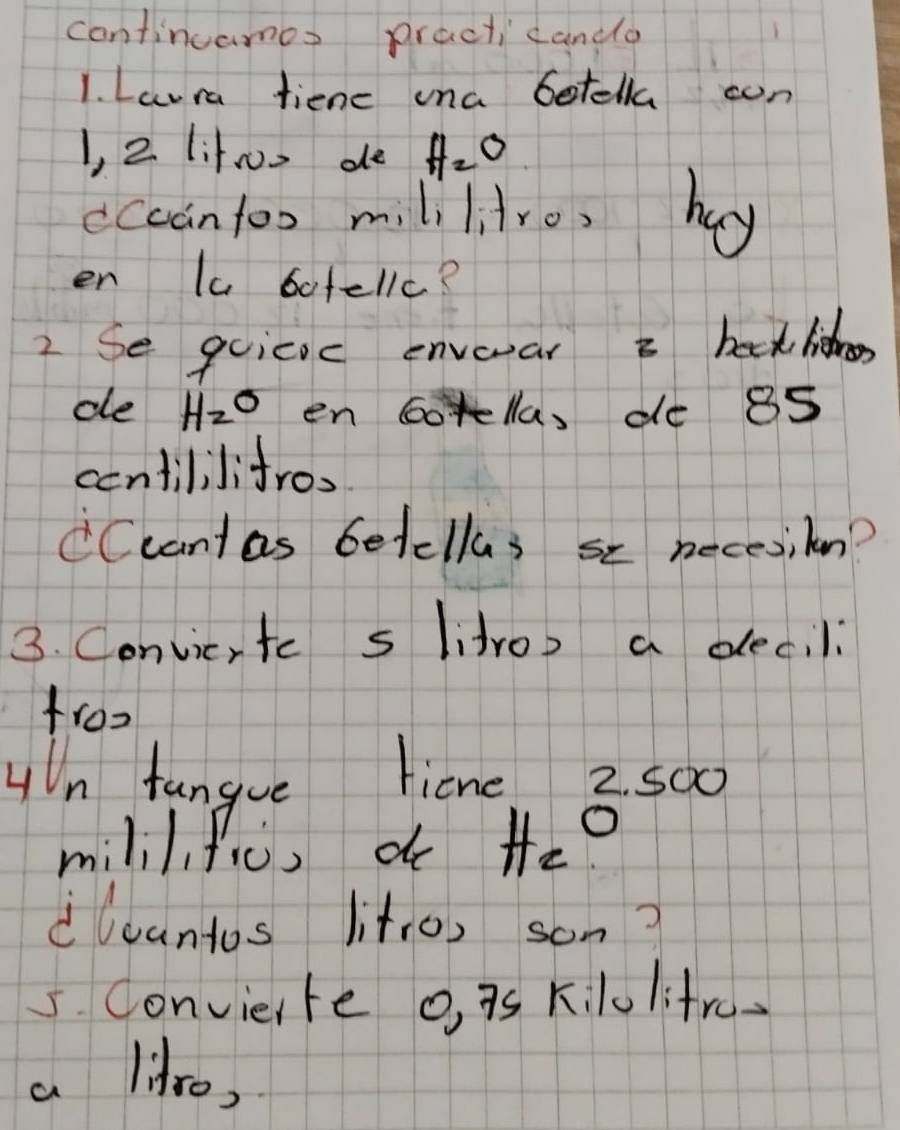 continuamos practicando
1. Laura tiene una botella con
1,2 litros de H2O.
¿Cuántos mililitros hay
en la botella?
2 Se quiere envasar hectolitros
de H2O en botellas de 85
centililitros.
¿Cuantas botellas se necesitan?
3. Convierte 5 litros a decili
tros
4 Un tanque tiene 2.500
mililitros de H2O.
¿Cuantos litros son?
5. Convierte 0,75 Kilolitros
a litros.